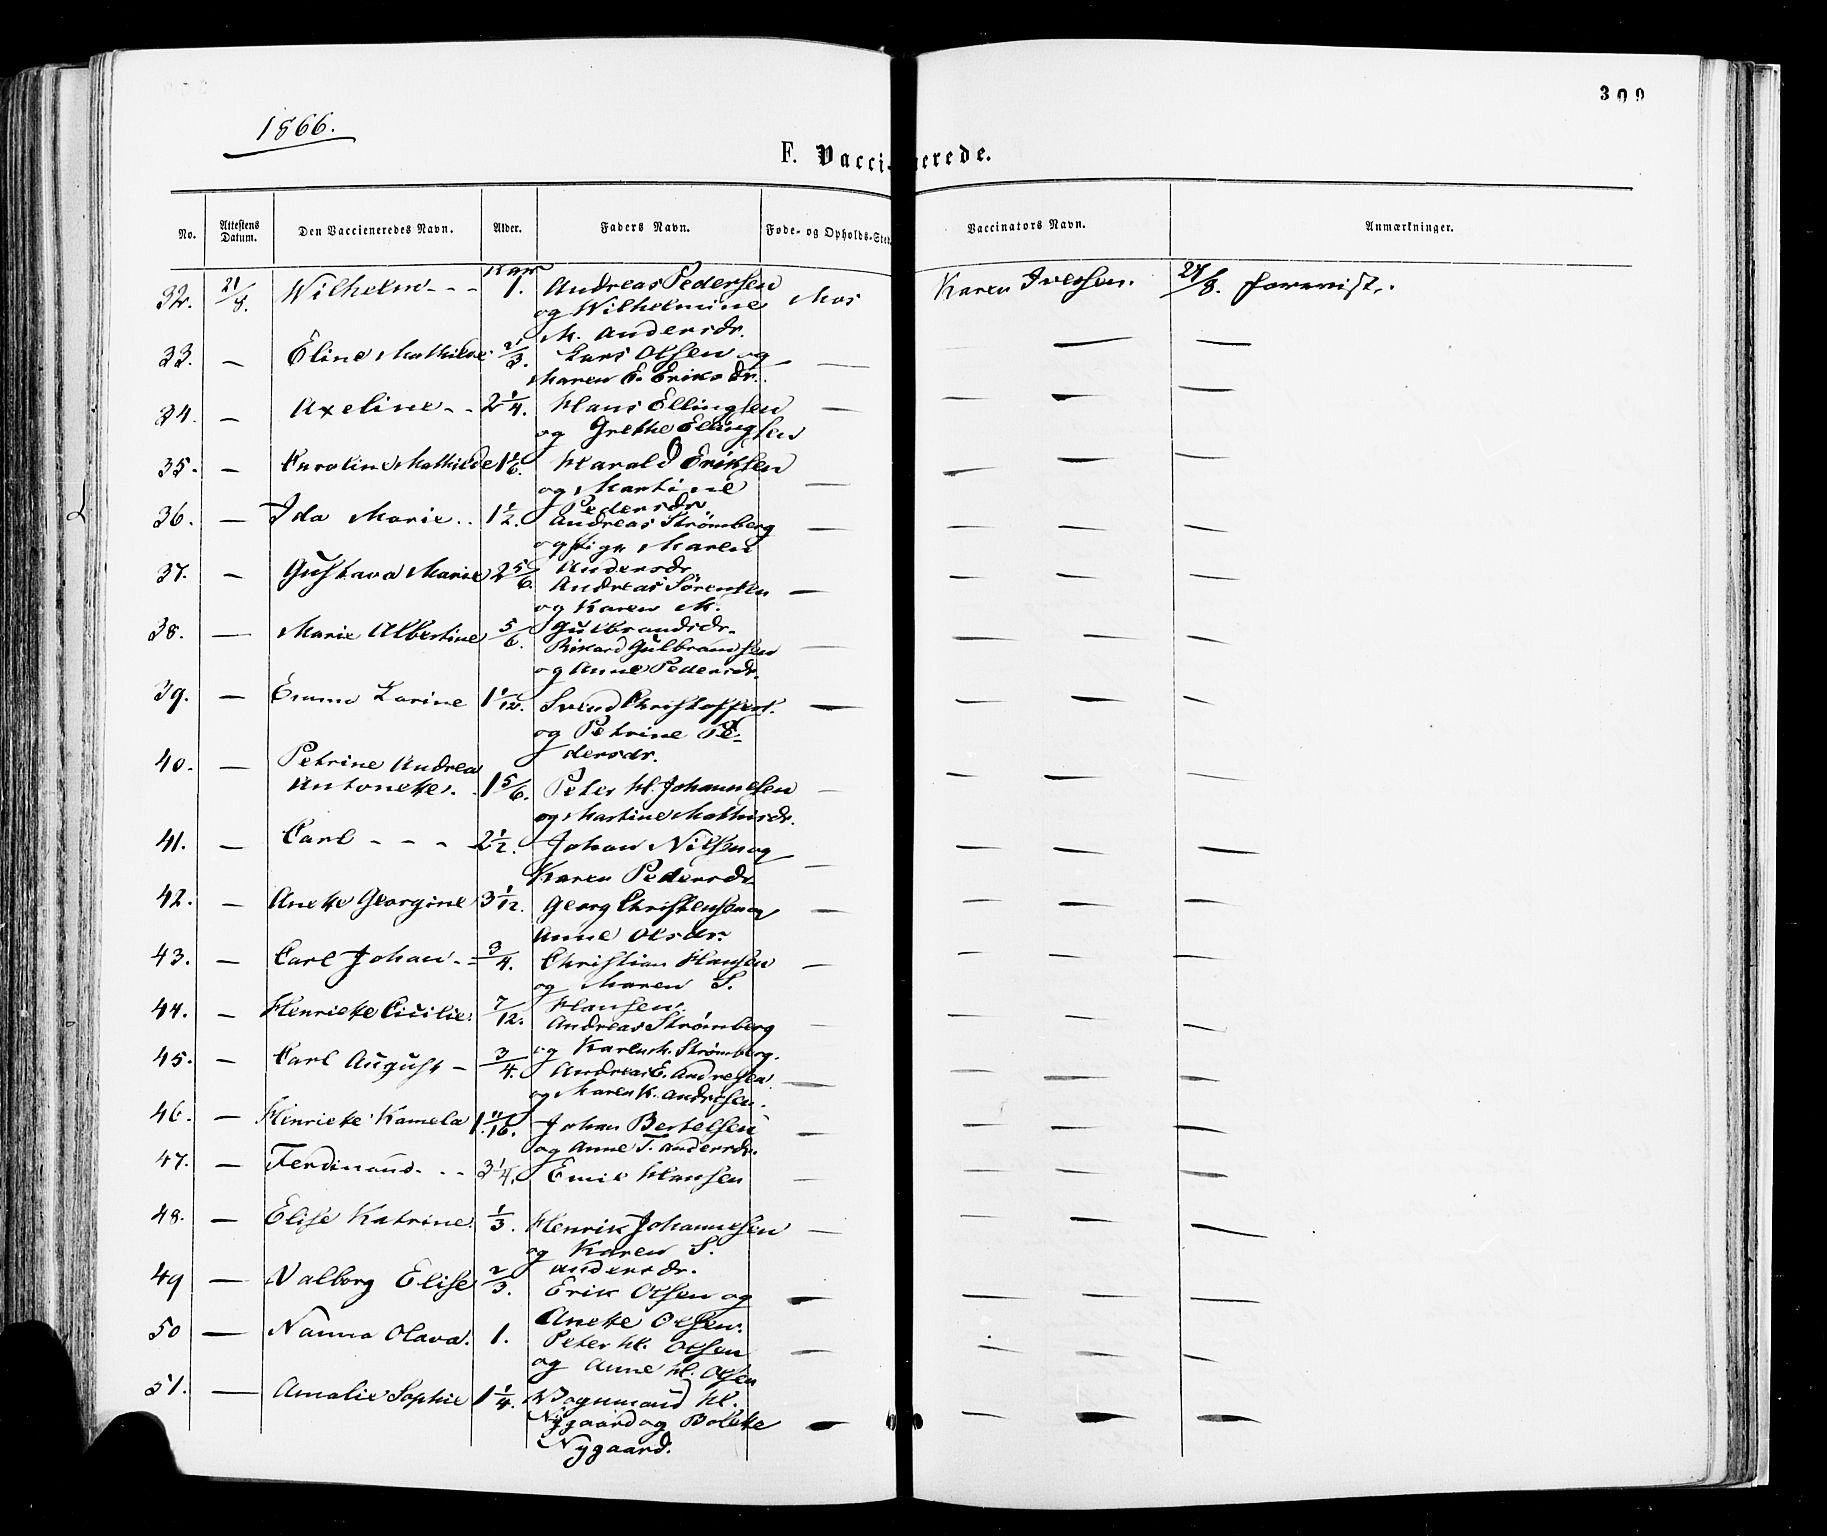 309
1866.
F. Vaccinerede.
No. Attestens Datum. Den Vaccieneredes Navn. Alder. Faders Navn. Føde- og Opholds-Sted Vaccinators Navn. Anmærkninger.
32. 21/8. Wilhelm - - - 1. Andreas Pedersen Mos Karen Iversen. 21/8. forevist.
og Wilhelmine
M. Andersdr.
33. — Eline Mathilde 2/3. Lars Olsen og — — — —
Maren E. Eriksdr.
34. — Axeline - - 2 1/4. Hans Ellingsen — — — —
og Grethe Ellingsen
35. — Caroline Mathilde 1 1/6. Harald Eriksen — — — —
og Martine
Pedersdr.
36. — Ida Marie .. 1 1/2. Andreas Strømberg — — — —
og Maren
Andersdr.
37. — Gustava Marie 2 5/6. Andreas Sørensen — — — —
og Karen M.
Gulbrandsdr.
38. — Marie Albertine 5/6. Rikard Gulbrandsen — — — —
og Anne Pedersdr.
39. — Emma Karine 1 1/12. Svend Christoffers. — — — —
og Petrine Pe-
dersdr.
40. — Petrine Andrea
Antonette. 1 5/6. Peter H. Johannesen — — — —
og Martine Mathisdr.
41. — Carl - - - 2 1/2. Johan Nilsen og — — — —
Karen Pedersdr
42. — Anette Georgine 3 1/12. Georg Christensen og — — — —
Anne Olsdr.
43. — Carl Johan - 3/4. Christian Hansen — — — —
og Maren S.
Hansen.
44. — Henriette Cicilie. 7/12. Andreas Strømberg — — — —
og Karen M. Strømberg.
45. — Carl August - 3/4. Andreas E. Andresen — — — —
og Maren K. Andresen.
46. — Henriette Kamela 1 Johan Bertelsen — — — —
og Anne T. Andersdr.
47. — Ferdinand - - 3 1/4. Emil Hansen — — — —
48. — Elise Katrine 1/3. Henrik Johannesen — — — —
og Karen S.
Andersdr.
49 — Valborg Elise 2/3. Erik Olsen og — — — —
Anette Olsen.
50 — Nanna Olava. 1. Peter H. Olsen — — — —
og Anne H. Olsen
51. — Amalie Sophie 1 1/4. H.
Nygaard og Bolette — — — —
Nygaard.